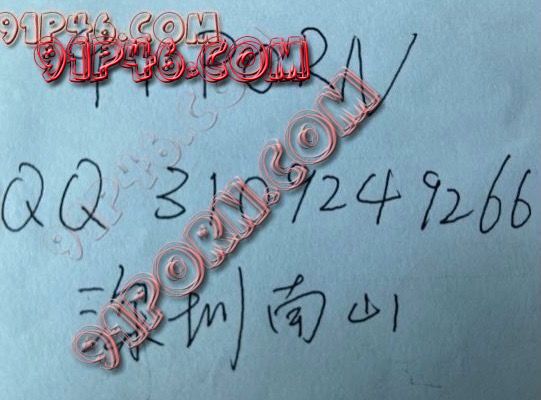 91P46.COM
91P46.COM
91PORN
QQ 3109249266
深圳南山
91P46.COM
91PORN.COM